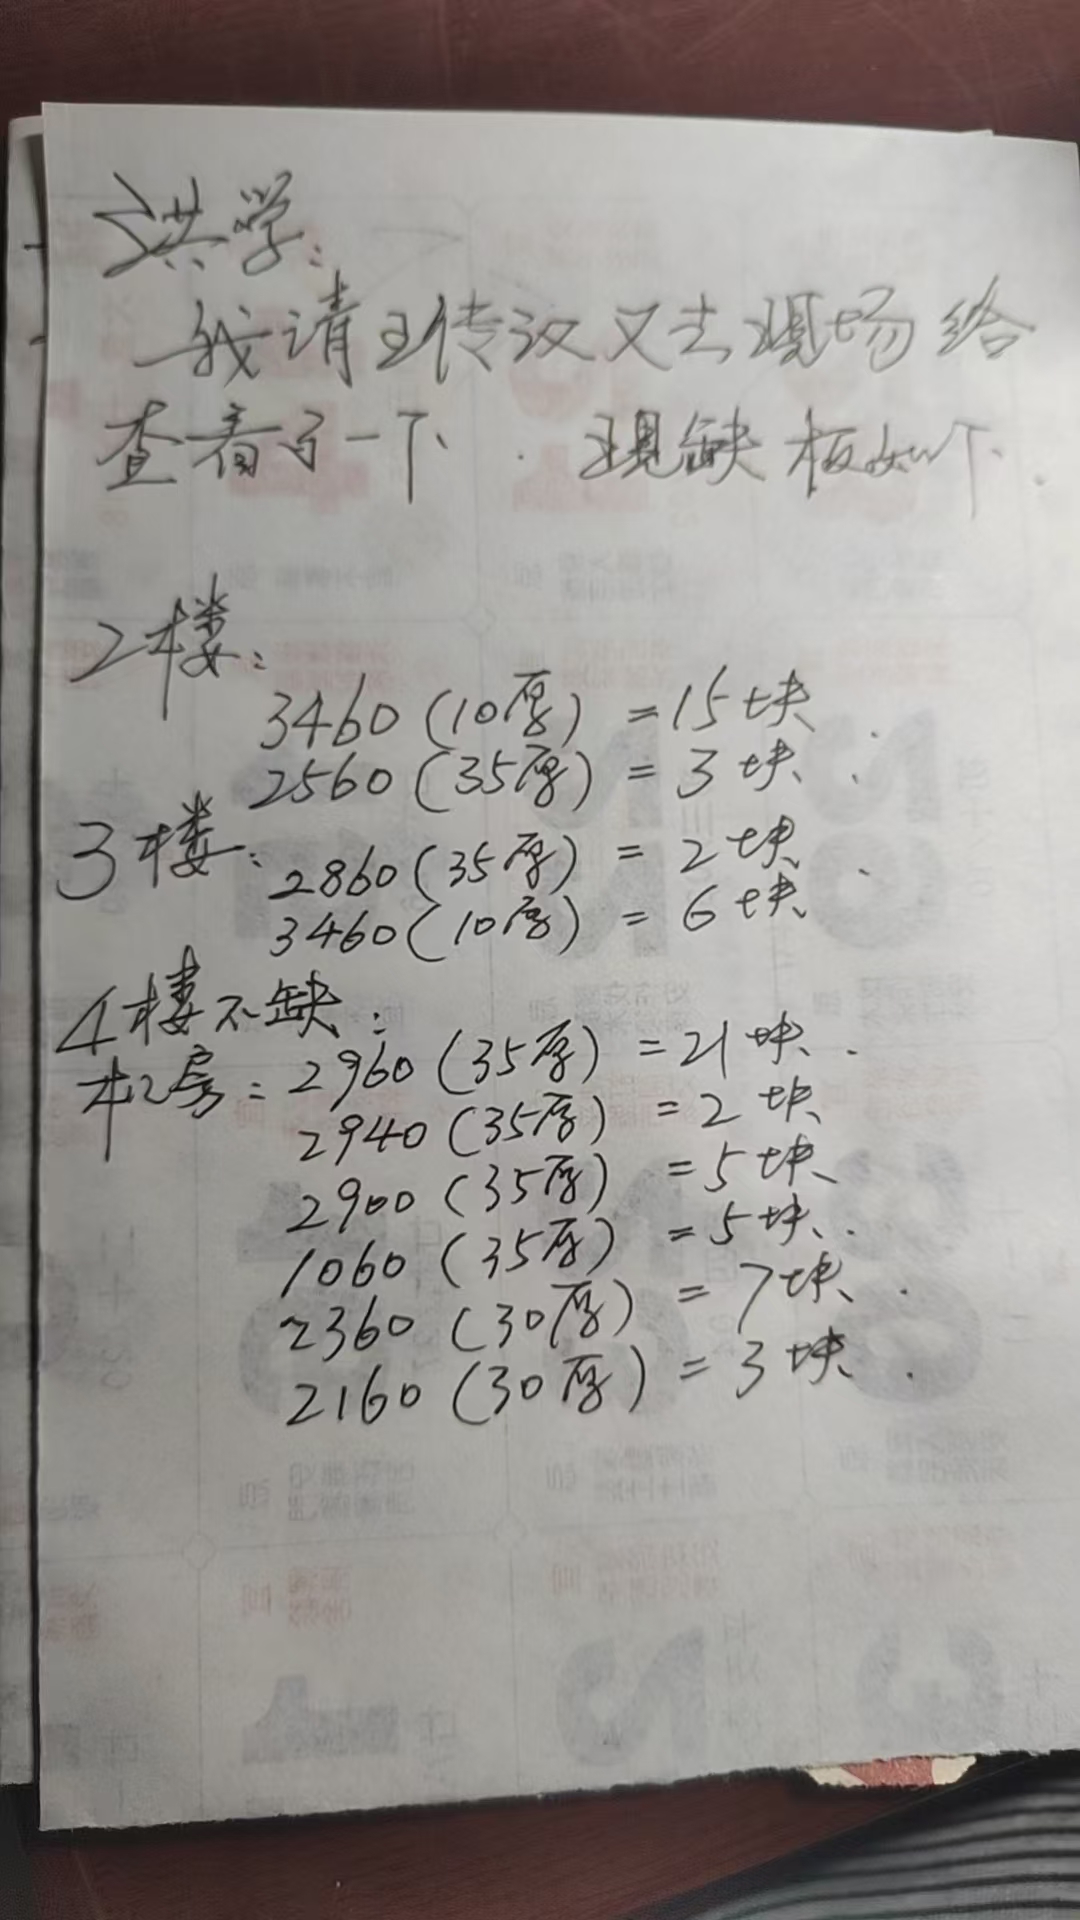 洪学:
我请王传汉又去现场给
查看了一下. 现缺板如下.
2楼:
3460(10厚) =15块.
2560(35厚) = 3块.
3楼:
2860(35厚) = 2块.
3460(10厚) = 6块
4楼不缺:
机房: 2960(35厚) =21块.
2940(35厚) =2块
2900(35厚) =5块
1060(35厚) =5块.
2360(30厚) =7块.
2160(30厚) =3块.